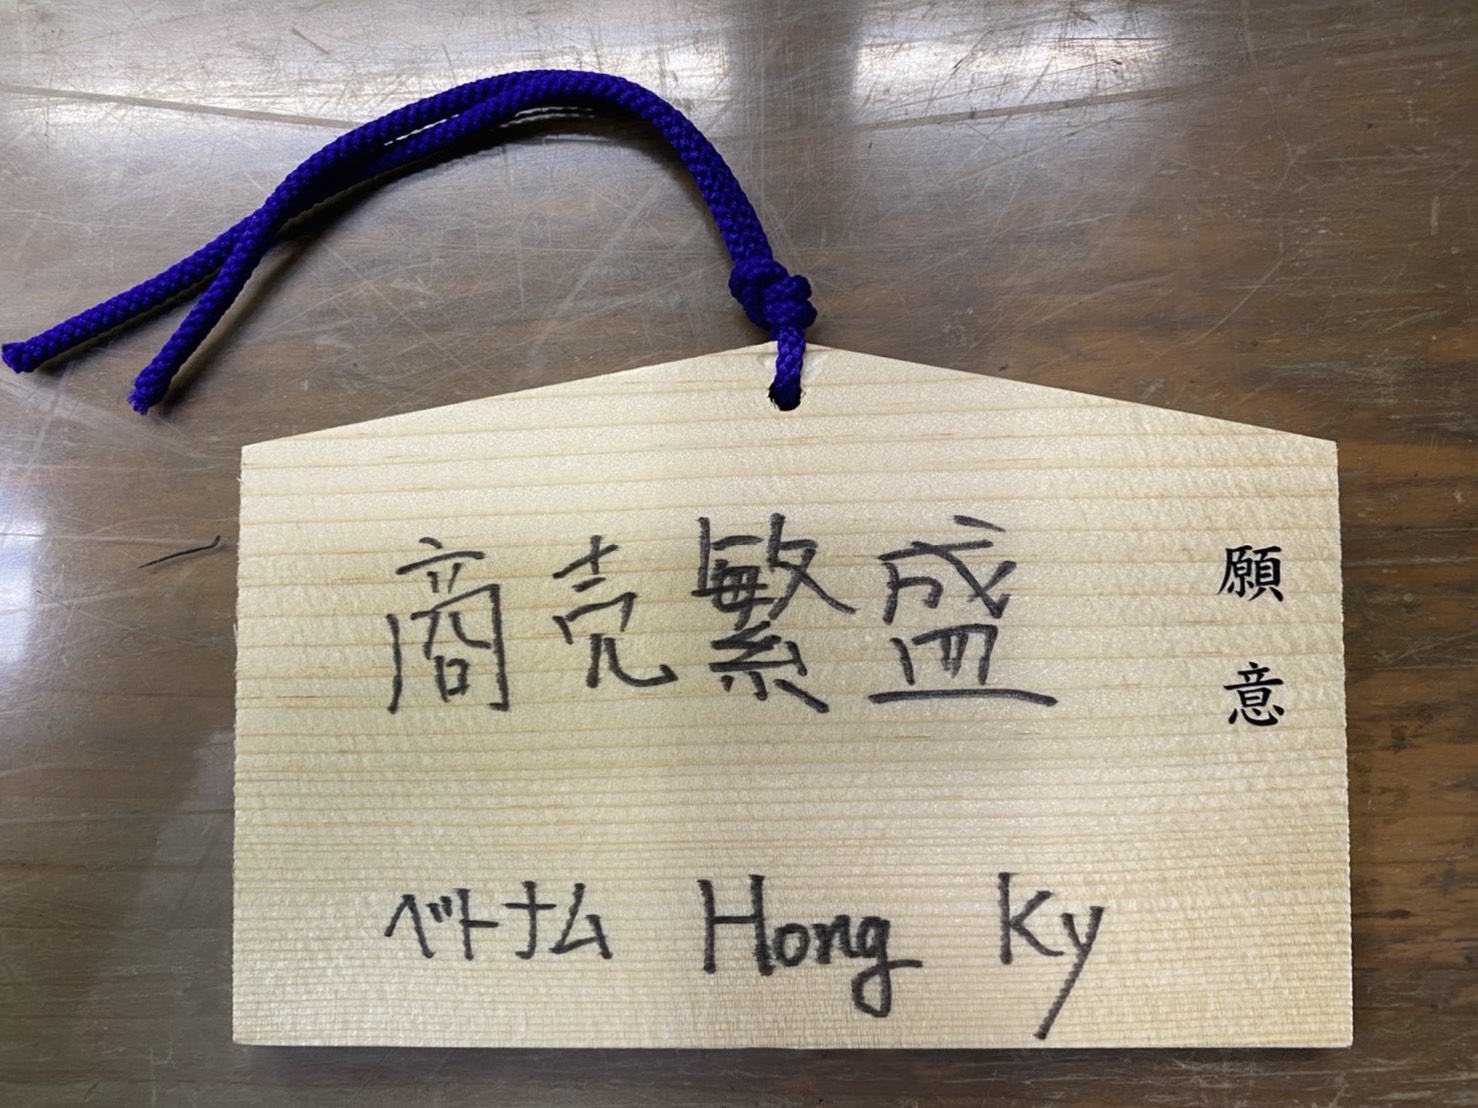 願意
商売繁盛
ベトナム Hong Ky